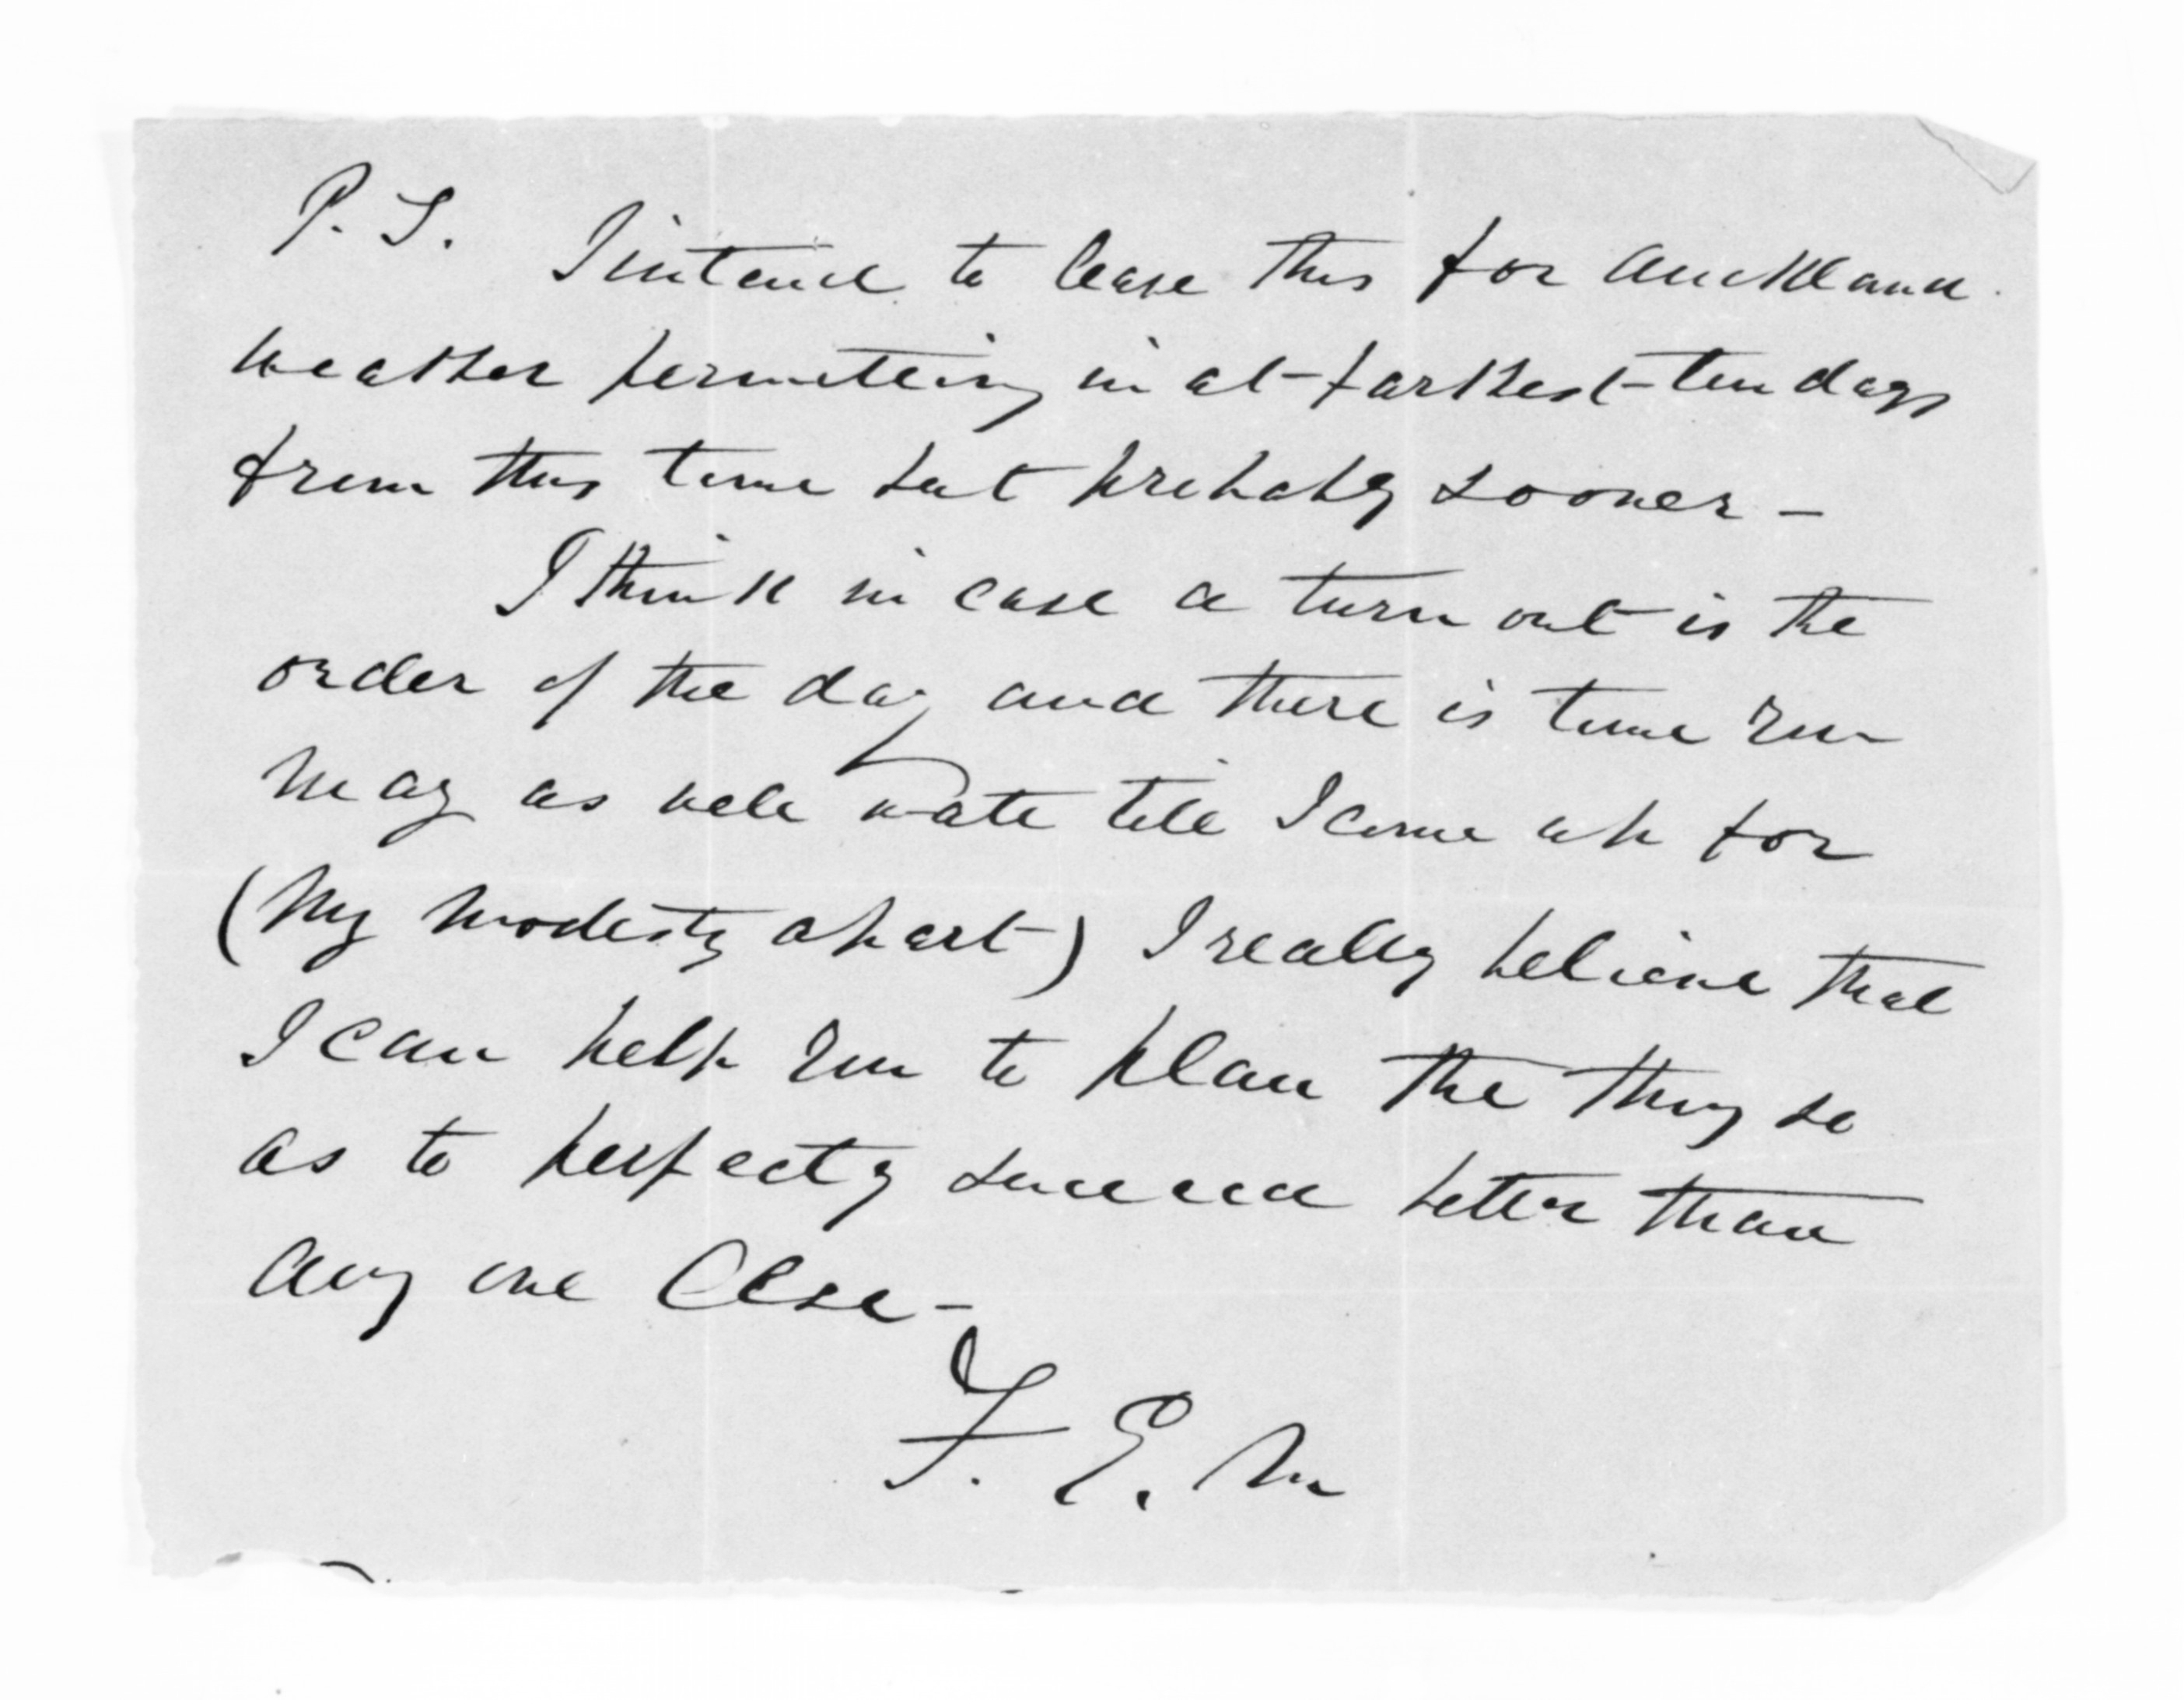 P. S. I intend to leave this for Auckland
weather permitting in at farthest ten days
from this time but probably sooner –
I think in case a turn out is the
order of the day and there is time you
may as well wate till I come up for
(my modesty apart) I really believe that
I can help you to plan the thing so
as to perfectly succeed better than
any one Else –
F. E. M